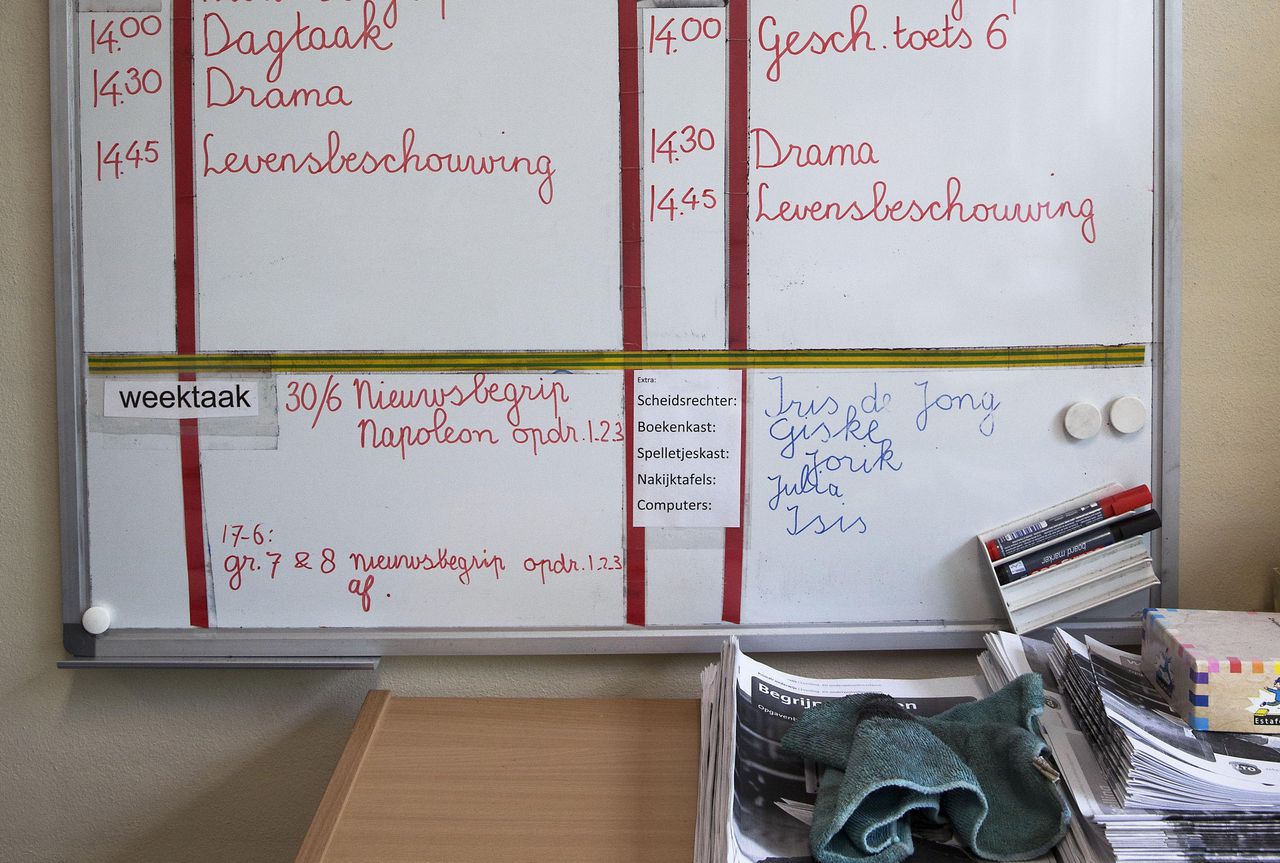 14.00 Dagtaak
14.30 Drama
14.45 Levensbeschouwing
14.00 Gesch. toets 6
14.30 Drama
14.45 Levensbeschouwing
weektaak
30/6 Nieuwsbegrip
Napoleon opdr. 1.2.3
17-6:
gr. 7 & 8 nieuwsbegrip opdr. 1.2.3
af.
Extra:
Scheidsrechter: Iris de Jong
Boekenkast: Giske
Spelletjeskast: Jorik
Nakijktafels: Julia
Computers: Isis
board marker